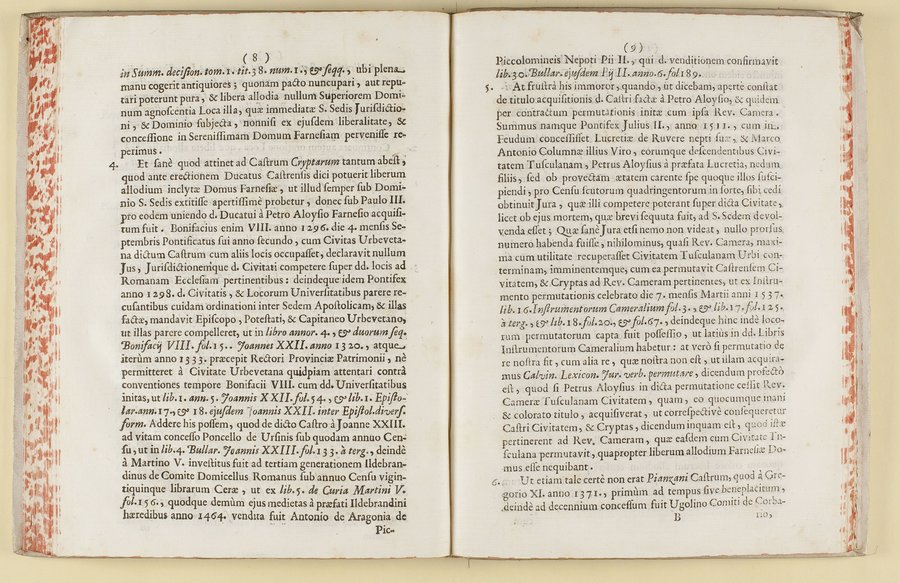 ( 8 )
in Summ. decision. tom. 1. tit. 38. num. 1., & seqq., ubi plena
manu cogerit antiquiores ; quonam pacto nuncupari, aut repu-
tari poterunt pura, & libera allodia nullum Superiorem Domi-
num agnoscentia Loca illa, quæ immediatæ S. Sedis Jurisdictio-
ni, & Dominio subjecta, nonnisi ex ejusdem liberalitate, &
concessione in Serenissimam Domum Farnesiam pervenisse re-
perimus.
4. Et sanè quod attinet ad Castrum Cryptarum tantum abest,
quod ante erectionem Ducatus Castrensis dici potuerit liberum
allodium inclytæ Domus Farnesiæ, ut illud semper sub Domi-
nio S. Sedis extitisse apertissimè probetur, donec sub Paulo III.
pro eodem uniendo d. Ducatui à Petro Aloysio Farnesio acquisi-
tum fuit. Bonifacius enim VIII. anno 1296. die 4. mensis Se-
ptembris Pontificatus sui anno secundo, cum Civitas Urbeveta-
na dictum Castrum cum aliis locis occupasset, declaravit nullum
Jus, Jurisdictionemque d. Civitati competere super dd. locis ad
Romanam Ecclesiam pertinentibus : deindeque idem Pontifex
anno 1298. d. Civitatis, & Locorum Universitatibus parere re-
cusantibus cuidam ordinationi inter Sedem Apostolicam, & illas
factæ, mandavit Episcopo, Potestati, & Capitaneo Urbevetano,
ut illas parere compelleret, ut in libro annor. 4., & duorum seq.
Bonifacij VIII. fol. 15.. Joannes XXII. anno 1320., atque
iterùm anno 1333. præcepit Rectori Provinciæ Patrimonii, nè
permitteret à Civitate Urbevetana quidpiam attentari contrà
conventiones tempore Bonifacii VIII. cum dd. Universitatibus
initas, ut lib. 1. ann. 5. Joannis XXII. fol. 54., & lib. 1. Episto-
lar. ann. 17., & 18. ejusdem Joannis XXII. inter Epistol. divers.
form. Addere his possem, quod de dicto Castro à Joanne XXIII.
ad vitam concesso Poncello de Ursinis sub quodam annuo Cen-
su, ut in lib. 4. Bullar. Joannis XXIII. fol. 133. à terg., deindè
à Martino V. investitus fuit ad tertiam generationem Ildebran-
dinus de Comite Domicellus Romanus sub annuo Censu vigin-
tiquinque librarum Ceræ, ut ex lib. 5. de Curia Martini V.
fol. 156., quodque demùm ejus medietas à præfati Ildebrandini
hæredibus anno 1464. vendita fuit Antonio de Aragonia de
Pic-
( 9 )
Piccolomineis Nepoti Pii II., qui d. venditionem confirmavit
lib. 30. Bullar. ejusdem Pij II. anno. 6. fol 189.
5. At frustrà his immoror, quando, ut dicebam, aperte constat
de titulo acquisitionis d. Castri factæ à Petro Aloysio, & quidem
per contractum permutationis initæ cum ipsa Rev. Camera.
Summus namque Pontifex Julius II., anno 1511., cum in
Feudum concessisset Lucretiæ de Ruvere nepti suæ, & Marco
Antonio Columnæ illius Viro, eorumque descendentibus Civi-
tatem Tusculanam, Petrus Aloysius à præfata Lucretia, nedum
filiis, sed ob provectam ætatem carente spe quoque illos susci-
piendi, pro Censu scutorum quadringentorum in sorte, sibi cedi
obtinuit Jura, quæ illi competere poterant super dicta Civitate,
licet ob ejus mortem, quæ brevi sequuta fuit, ad S. Sedem devol-
venda esset ; Quæ sanè Jura etsi nemo non videat, nullo prorsus
numero habenda fuisse, nihilominus, quasi Rev. Camera, maxi-
ma cum utilitate recuperasset Civitatem Tusculanam Urbi con-
terminam, imminentemque, cum ea permutavit Castrensem Ci-
vitatem, & Cryptas ad Rev. Cameram pertinentes, ut ex Instru-
mento permutationis celebrato die 7. mensis Martii anni 1537.
lib. 16. Instrumentorum Cameralium fol. 3., & lib. 17. fol. 125.
à terg., & lib. 18. fol. 20., & fol. 67., deindeque hinc indè loco-
rum permutatorum capta fuit possessio, ut latiùs in dd. Libris
Instrumentorum Cameralium habetur : at verò si permutatio de
re nostra fit, cum alia re, quæ nostra non est, ut illam acquira-
mus Calvin. Lexicon. Jur. verb. permutare, dicendum profectò
est, quod si Petrus Aloysius in dicta permutatione cessit Rev.
Cameræ Tusculanam Civitatem, quam, co quocumque inani
& colorato titulo, acquisiverat, ut correspectivè consequeretur
Castri Civitatem, & Cryptas, dicendum inquam est, quod istæ
pertinerent ad Rev. Cameram, quæ easdem cum Civitate Tu-
sculana permutavit, quapropter liberum allodium Farnesiæ Do-
mus esse nequibant.
6. Ut etiam tale certè non erat Pianzani Castrum, quod à Gre-
gorio XI. anno 1371., primùm ad tempus sive beneplacitum,
deindè ad decennium concessum fuit Ugolino Comiti de Corba-
B
rio,